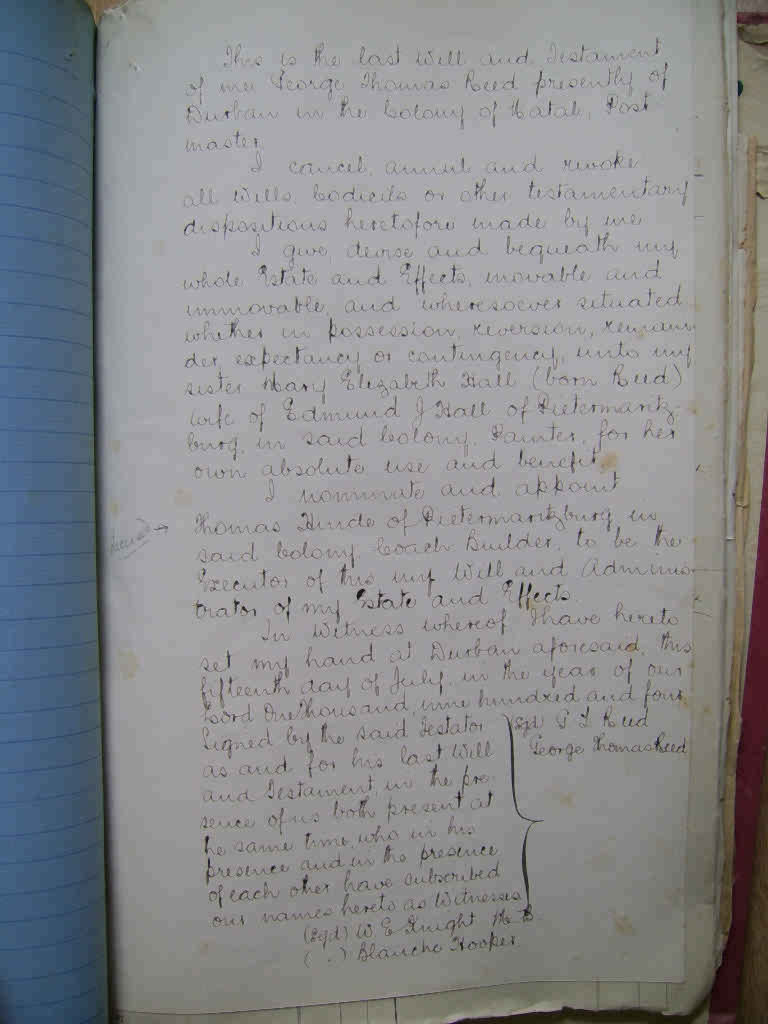 This is the last Will and Testament
of me George Thomas Reed presently of
Durban in the Colony of Natal, Post
master,
I cancel, annul and revoke
all Wills, Codicils or other testamentary
dispositions heretofore made by me
I give, devise and bequeath my
whole Estate and Effects, movable and
immovable, and wheresoever situated
whether in possession, reversion, remain
der expectancy or contingency, unto my
sister Mary Elizabeth Hall (born Reed)
wife of Edmund J Hall of Pietermaritz-
burg, in said Colony, Painter, for her
own absolute use and benefit
I nominate and appoint
Thomas Hinde of Pietermaritzburg in
said Colony Coach Builder, to be the
Executor of this my Will and Adminis-
trator of my Estate and Effects.
In Witness whereof I have hereto
set my hand at Durban aforesaid, this
fifteenth day of July in the year of our
Lord One Thousand, nine hundred and four
Signed by the said Testator
as and for his last Will
and Testament, in the pre-
sence of us both present at
he same time, who in his
presence and in the presence
of each other have subscribed
our names hereto as Witnesses
(Sgd) G T Reed
George Thomas Reed
(Sgd) W E Knight
( " ) Blanche Hooper